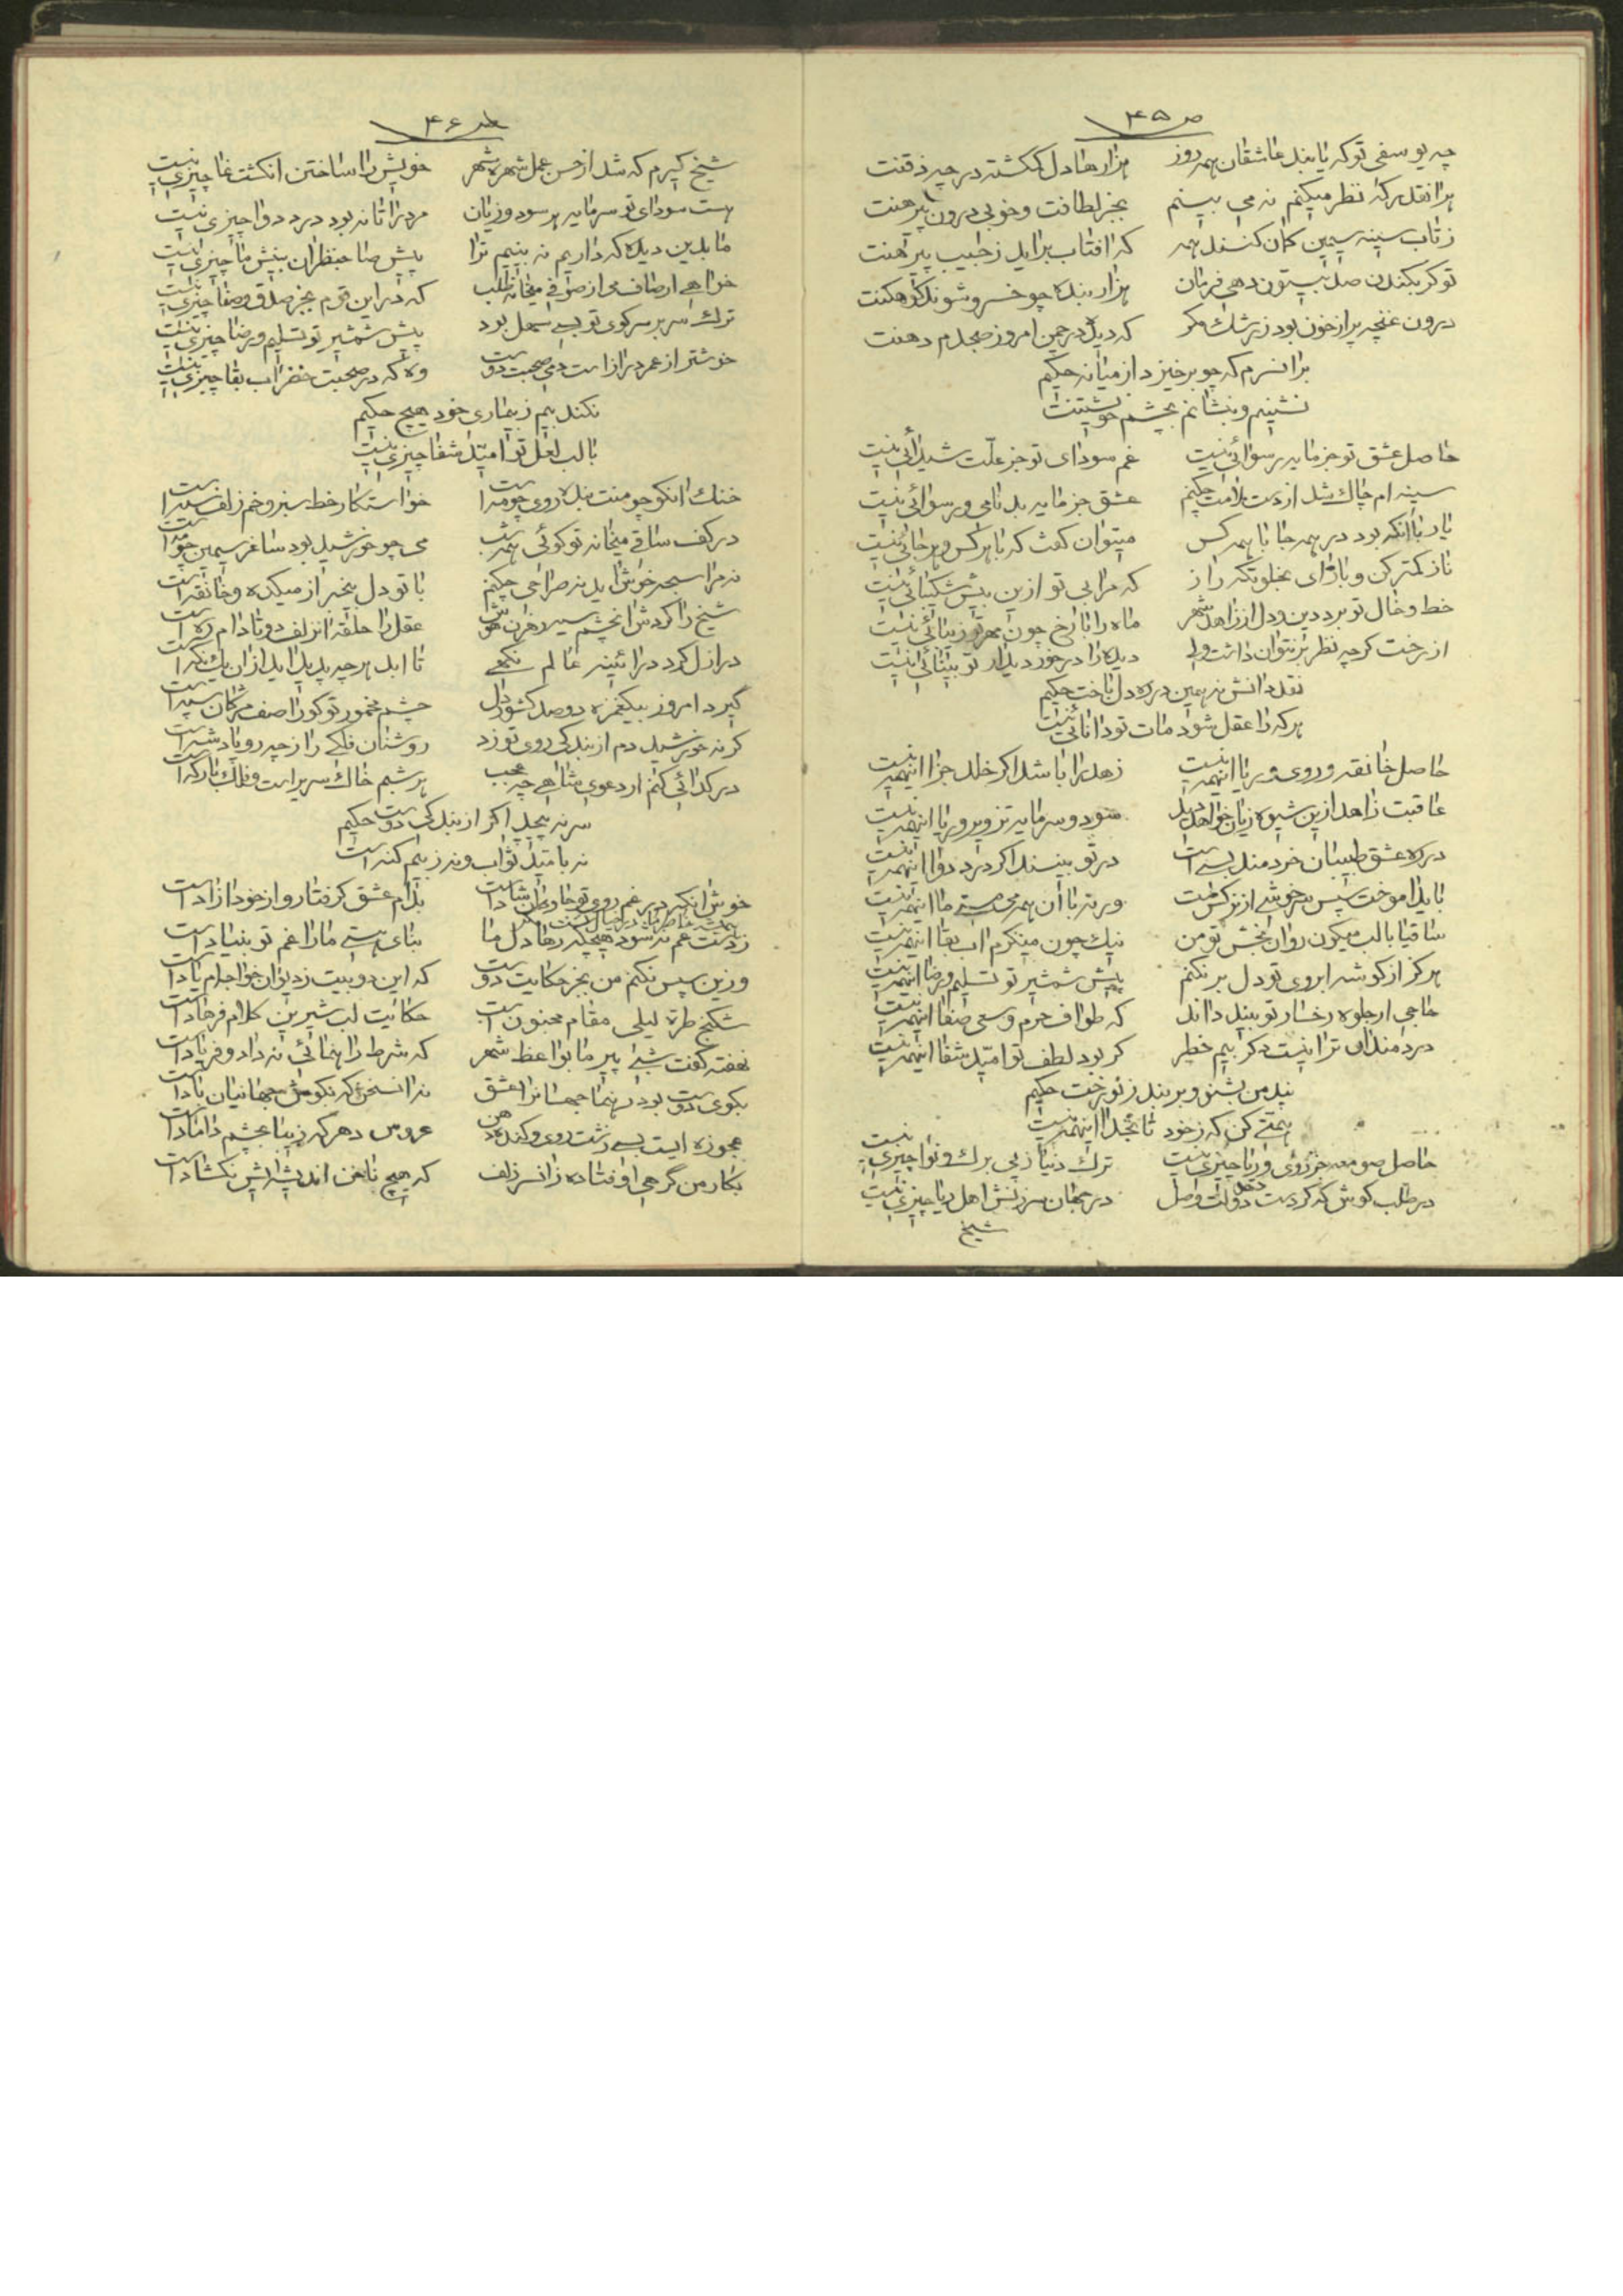 ص ۴۵
چه یوسفی تو که یابند عاشقان همه روز هزارها دل گمگشته در چه ذقنت
هر آنقدر که نظر میکنم نه می بینم بجز لطافت و خوبی درون پیرهنت
ز تاب سینه سیمین کمان کنند همه که افتاب براید ز جیب پیرهنت
تو گر بکندن صد بیستون دهی فرمان هزار بنده چو خسرو شوند کوهکنت
درون غنچه پر از خون بود ز رشک مگر که دید در چمن امروز صبحدم دهنت
بر انسرم که چو برخیزد از میانه حکیم
نشینم و بنشانم بچشم خویشتنت
حاصل عشق تو جز مایه رسوائی نیست غم سودای تو جز علت شیدائی نیست
سینه ام چاک شد از دست ملامت چکنم عشق جز مایه بدنامی و رسوائی نیست
یار با انکه بود در همه جا با همه کس میتوان گفت که با هر کس و هر جائی نیست
ناز کمتر کن و باز ای بخلوتگه راز که مرا بی تو ازین بیش شکیبائی نیست
خط و خال تو برد دین و دل از زاهد شهر ماه را با رخ چون مهر تو زیبائی نیست
از رخت گرچه نظر بر نتوان داشت ولی دیده را در خور دیدار تو بینائی نیست
نقد دانش نه همین در ره دل باخت حکیم
هر که را عقل شود مات تو دانائی نیست
حاصل خانقه و روی و ریا اینهمه نیست زهد را باشد اگر خلد جزا اینهمه نیست
عاقبت زاهد ازین شیوه زیان خواهد دید سود و سرمایه تزویر و ریا اینهمه نیست
در ره عشق طبیبان خردمند بسی است در تو بینند اگر درد دوا اینهمه نیست
باید اموخت سپس سرخوشی از نرگس مست ورنه با آن همه می مستی ما اینهمه نیست
ساقیا با لب میگون روان بخش تو من نیک چون مینگرم اب بقا اینهمه نیست
هرگز از گوشه ابروی تو دل بر نکنم پیش شمشیر تو تسلیم و رضا اینهمه نیست
حاجی ار جلوه رخسار تو بیند داند که طواف حرم و سعی صفا اینهمه نیست
دردمندان ترا نیست دگر بیم خطر گر بود لطف تو امید شفا اینهمه نیست
پند من بشنو و بربند ز نو رخت حکیم
همتی کن که ز خود تا بخدا اینهمه نیست
حاصل صومعه جز روی و ریا چیزی نیست ترک دنیا ز پی برک و نوا چیزی نیست
در طلب کوش که گر دست دهد دولت وصل در جهان سرزنش اهل ریا چیزی نیست
شیخ
ص ۴۶
شیخ گیرم که شد از حسن عمل شهره شهر خویش را ساختن انگشت نما چیزی نیست
هست سودای تو سرمایه هر سود و زیان مرد را تا نه بود درد دوا چیزی نیست
ما بدین دیده که داریم نه بینیم ترا پیش صاحبنظران بینش ما چیزی نیست
خواهی ار صاف می از صوفی میخانه طلب که در این قوم بجز صدق و صفا چیزی نیست
ترک سر بر سر کوی تو بسی سهل بود پیش شمشیر تو تسلیم و رضا چیزی نیست
خوشتر از عمر دراز است دمی صحبت دوست وه که در صحبت خضر اب بقا چیزی نیست
نکند بیم ز بیماری خود هیچ حکیم
با لب لعل تو امید شفا چیزی نیست
خنک انکو چو منت بنده روی چو مه است خواستکار خط سبز و خم زلف سیه است
در کف ساقی میخانه تو گوئی همه شب می چو خورشید بود ساغر سیمین چو مه است
نه مرا سبحه خوش اید نه صراحی چکنم با تو دل بیخبر از میکده و خانقه است
شیخ را گردش ان چشم سیه رهزن هوش عقل را حلقه ان زلف دوتا دام ره است
در ازل کرد در ائینه عالم نگهی تا ابد هر چه پدید اید از ان یک نگه است
گیرد امروز بیکغمزه دو صد کشور دل چشم مخمور تو کورا صف مژگان سپه است
گر نه خورشید دم از بندگی روی تو زد روشنان فلکی را ز چه رو پادشه است
در گدائی کنم ار دعوی شاهی چه عجب هر شبم خاک سریر است و فلک بارگه است
سر نه پیچد اگر از بندگی دوست حکیم
نه بامید ثواب و نه ز بیم گنه است
خوش انکه در غم روی تو جاودان شاد است بدام عشق گرفتار و از خود ازاد است
ز دست غم نه شود هیچگه رها دل ما بنای هستی ما را غم تو بنیاد است
وزین سپس نکنم من بجز حکایت دوست که این دو بیت ز دیوان خواجه ام یاد است
شکنج طره لیلی مقام مجنون است حکایت لب شیرین کلام فرهاد است
نهفته گفت شبی پیر ما بواعظ شهر که شرط راهنمائی نه داد و فریاد است
بکوی دوست بود رهنما جهان را عشق نه ان سخن که بگوش جهانیان باد است
عجوزه ایست بسی زشت روی و گنده دهن عروس دهر که زیبا بچشم داماد است
بکار من گرهی اوفتاده زان سر زلف که هیچ ناخن اندیشه اش نگشاد است